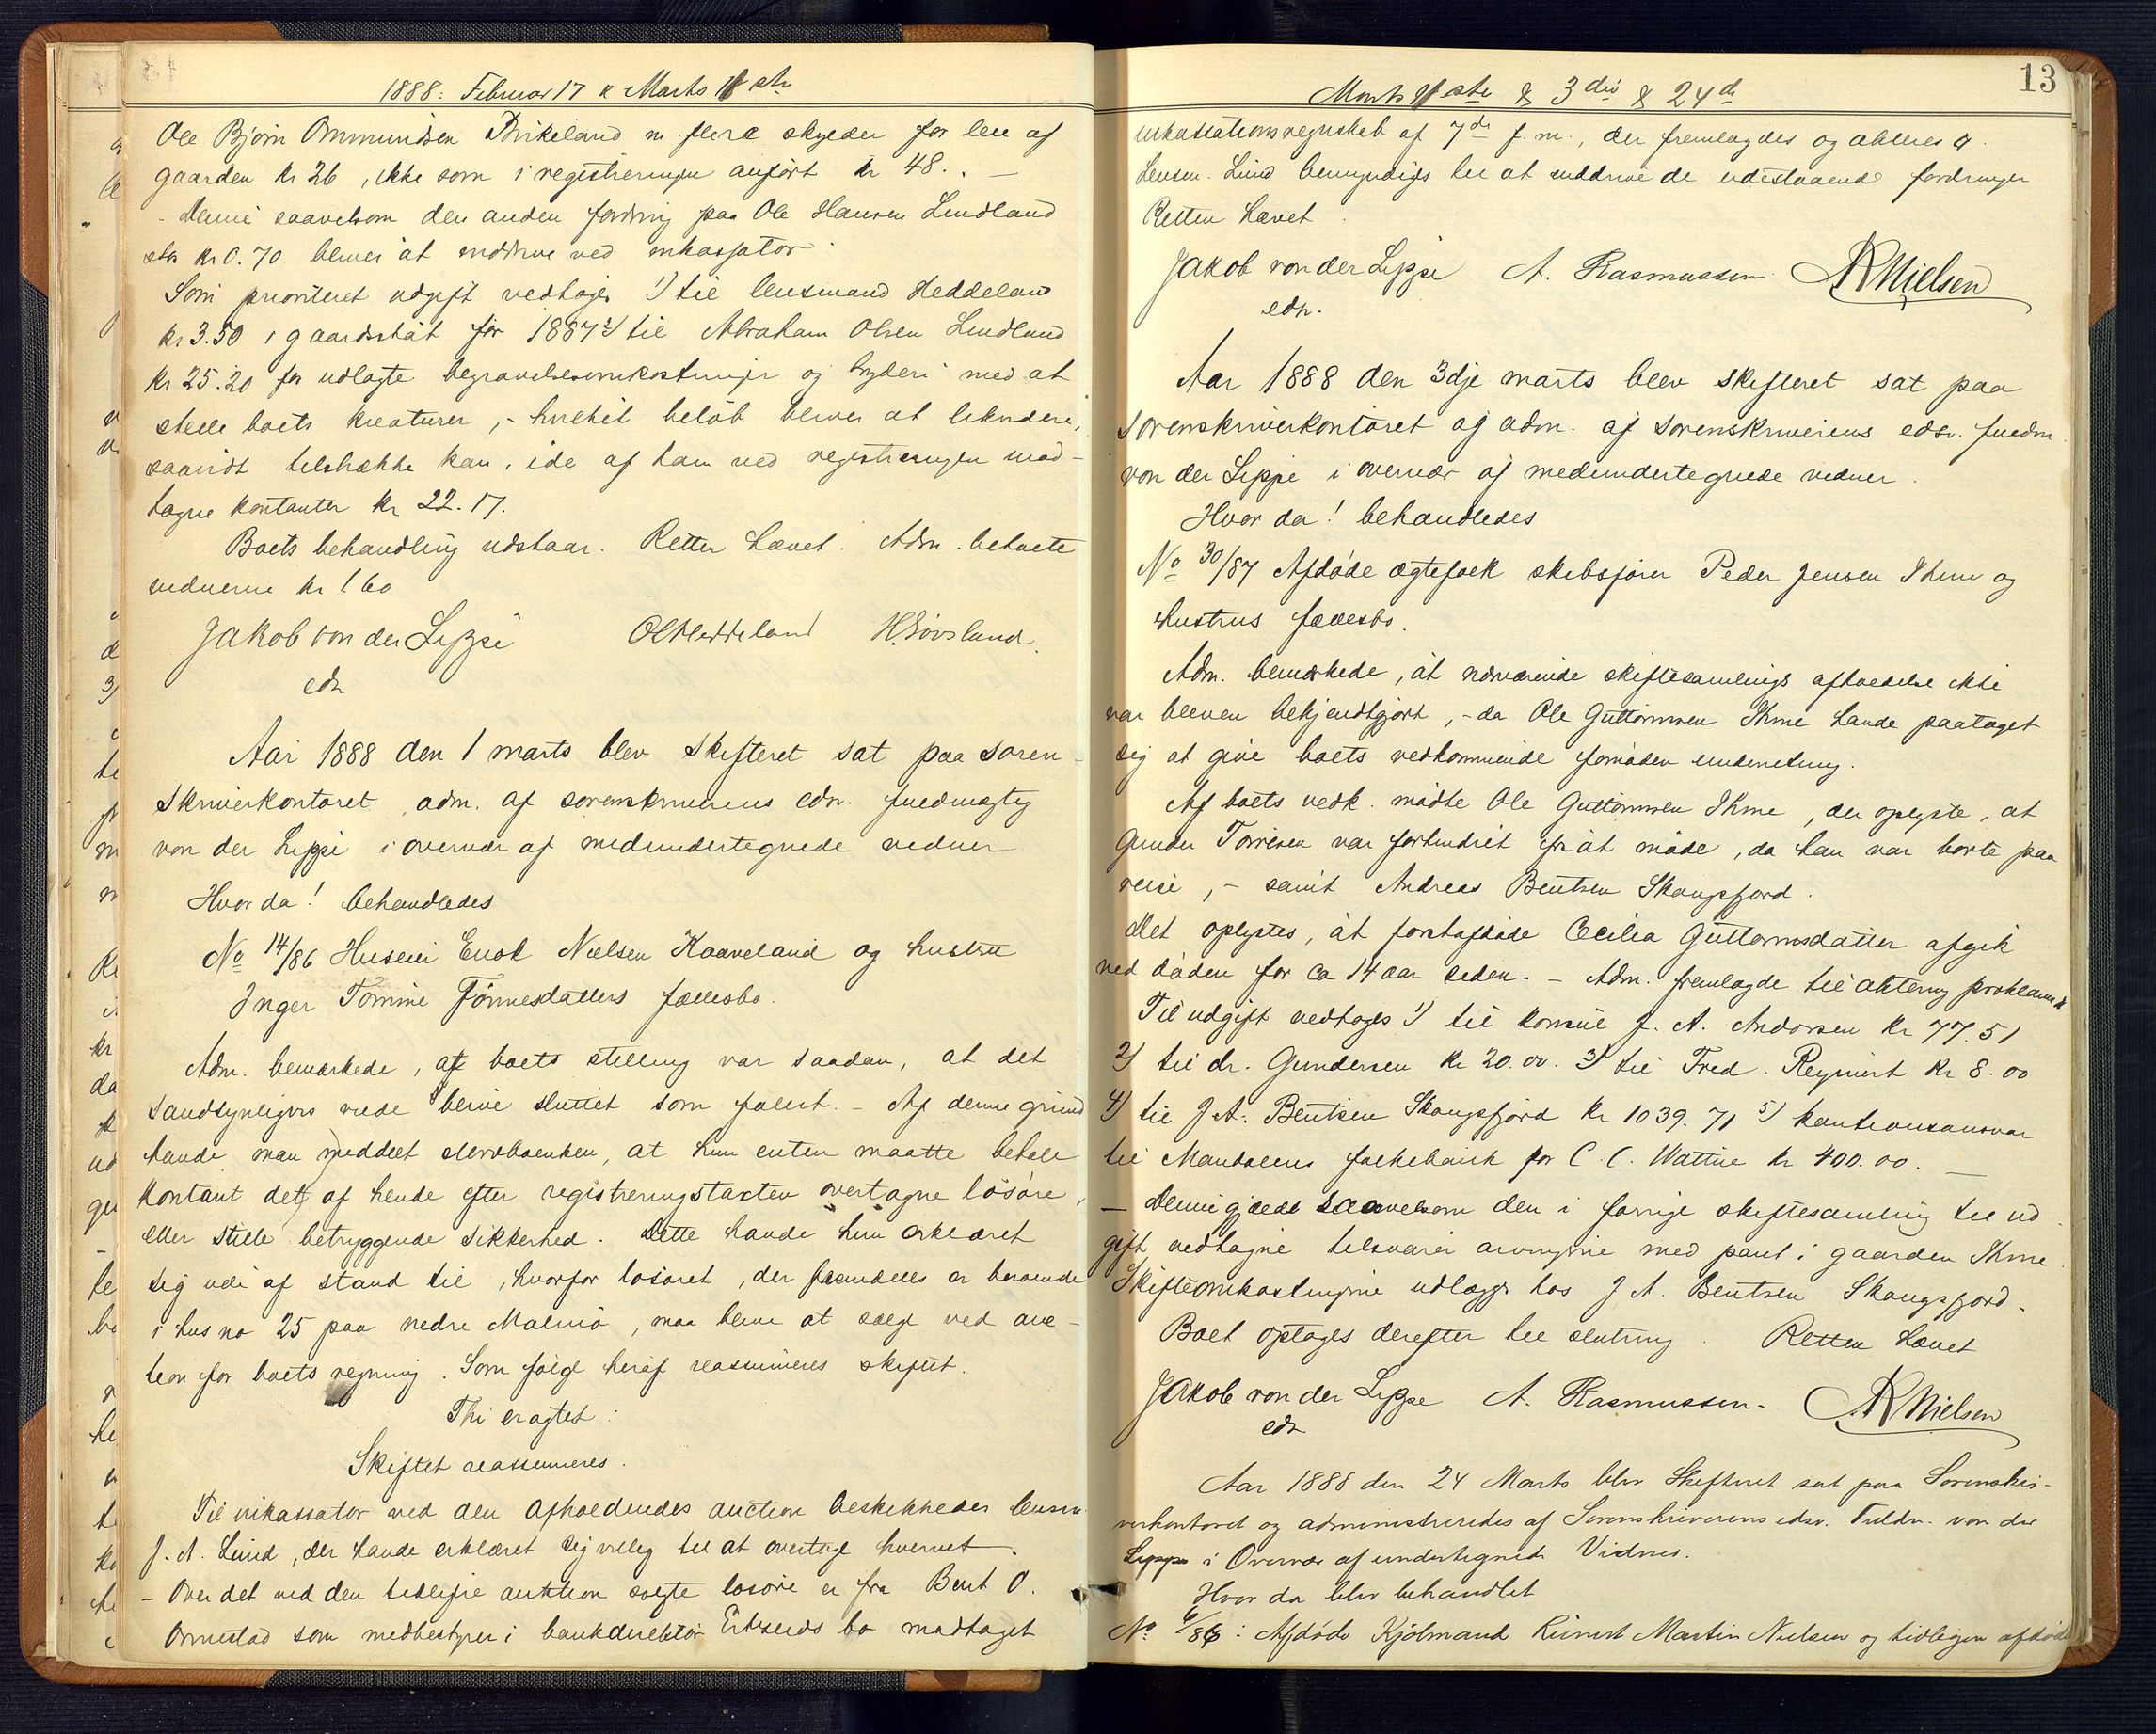 1888: Februar 17 & Marts 1ste
Ole Bjørn Ommundsen Birkeland m. flere skylder for leie af
gaarden kr 26, ikke som i registreringen anført kr 48. . —
- Denne saavelsom den anden fordring paa Ole Hansen Lindland
stor kr 0.70 bliver at inddrive ved inkassator.
Som prioriteret udgift vedtages 1) til lensmand Heddeland
kr 3.50 i gaardsskat for 1887 2) til Abraham Olsen Lindland
kr 25.20 for udlagte begravelsesomkostninger og byderi med at
stelle boets kreaturer, - hvilket beløb bliver at likvidere,
saavidt tilstrække kan, i de af ham ved registreringen mod-
tagne kontanter kr 22.17.
Boets behandling udstaar. Retten hævet. Adm. betalte
vidnerne kr 1.60
Jakob von der Lippe OHeddeland H. Løvsland
edsv
Aar 1888 den 1 marts blev skifteret sat paa soren-
skriverkontoret, adm. af sorenskriverens edsv. fuldmægtig
von der Lippe i overvær af medundertegnede vidner
Hvor da! behandledes
No 14/86 Huseier Enok Nielsen Kaaveland og hustru
Inger Tomine Tønnesdatters fællesbo.
Adm. bemærkede, at boets stilling var saadan, at det
sandsynligvis vilde blive sluttet som falit. - Af denne grund
havde man meddelt stervboenken, at hun enten maatte betale
kontant det af hende efter registreringstaxten overtagne løsøre,
eller stille betryggende sikkerhed. Dette havde hun erklæret
sig ude af stand til, hvorfor løsøret, der fremdeles er beroende
i hus no 25 paa nedre Malmø, maa blive at sælge ved auk-
tion for boets regning. Som følge heraf reassumeres skiftet.
Thi eragtet:
Skiftet reassumeres.
Til inkassator ved den afholdendes auction beskikkedes lensm.
J. A. Lund, der havde erklæret sig villig til at overtage hvervet.
- Over det ved den tidligere auktion solgte løsøre er fra Bent O.
Ormestad som medbestyrer i bankdirektør Ertzeids bo modtaget
13
Marts 1ste & 3die & 24de
inkassationsregnskab af 7de f. m., der fremlagdes og akteres
Lensm. Lund bemyndiges til at inddrive de udestaaende fordringer
Retten hævet.
Jakob von der Lippe A. Rasmussen. ARNielsen
edsv.
Aar 1888 den 3dje marts blev skifteret sat paa
sorenskriverkontoret og adm. af sorenskriverens edsv. fuldm.
von der Lippe i overvær af medundertegnede vidner.
Hvor da! behandledes
No 30/87 Afdøde ægtefolk skibsfører Peder Jensen Ihme og
hustrus fællesbo.
Adm. bemærkede, at nærværende skiftesamlings afholdelse ikke
var bleven bekjendtgjort, - da Ole Guttormsen Ihme havde paataget
sig at give boets vedkommende fornøden underretning.
Af boets vedk. mødte Ole Guttormsen Ihme, der oplyste, at
Gunder Torresen var forhindret fra at møde, da han var borte paa
reise, - samt Andreas Bentsen Skaugsfjord.
Det oplystes, at førstafdøde Cecilia Guttormsdatter afgik
ved døden for ca 14 aar siden. - Adm. fremlagde til aktering proklama
Til udgift vedtages 1) til konsul J. A. Andorsen kr 77.51
2) til dr. Gundersen kr 20.00. 3) til Fred. Reymert kr 8.00
4) til J A. Bentsen Skaugsfjord kr 1039.71 5) kautionsansvar
til Mandalens folkebank for C. C. Wattne kr 400.00. —
- Denne gjæld saavelsom den i forrige skiftesamling til ud-
gift vedtagne tilsvarer arvingerne med pant i gaarden Ihme.
Skifteomkostningerne udlægges hos J A. Bentsen Skaugsfjord.
Boet optages derefter til slutning. Retten hævet
Jakob von der Lippe A. Rasmussen. ARNielsen
edsv
Aar 1888 den 24 Marts blev Skifteret sat paa Sorenskri-
verkontoret og administreredes af Sorenskriverens edsv. Fuldm. von der
Lippe i Overvær af undertegnede Vidner.
Hvor da blev behandlet
No 6/86: Afdøde Kjøbmand Reinert Martin Nielsen og tidligere afdøde